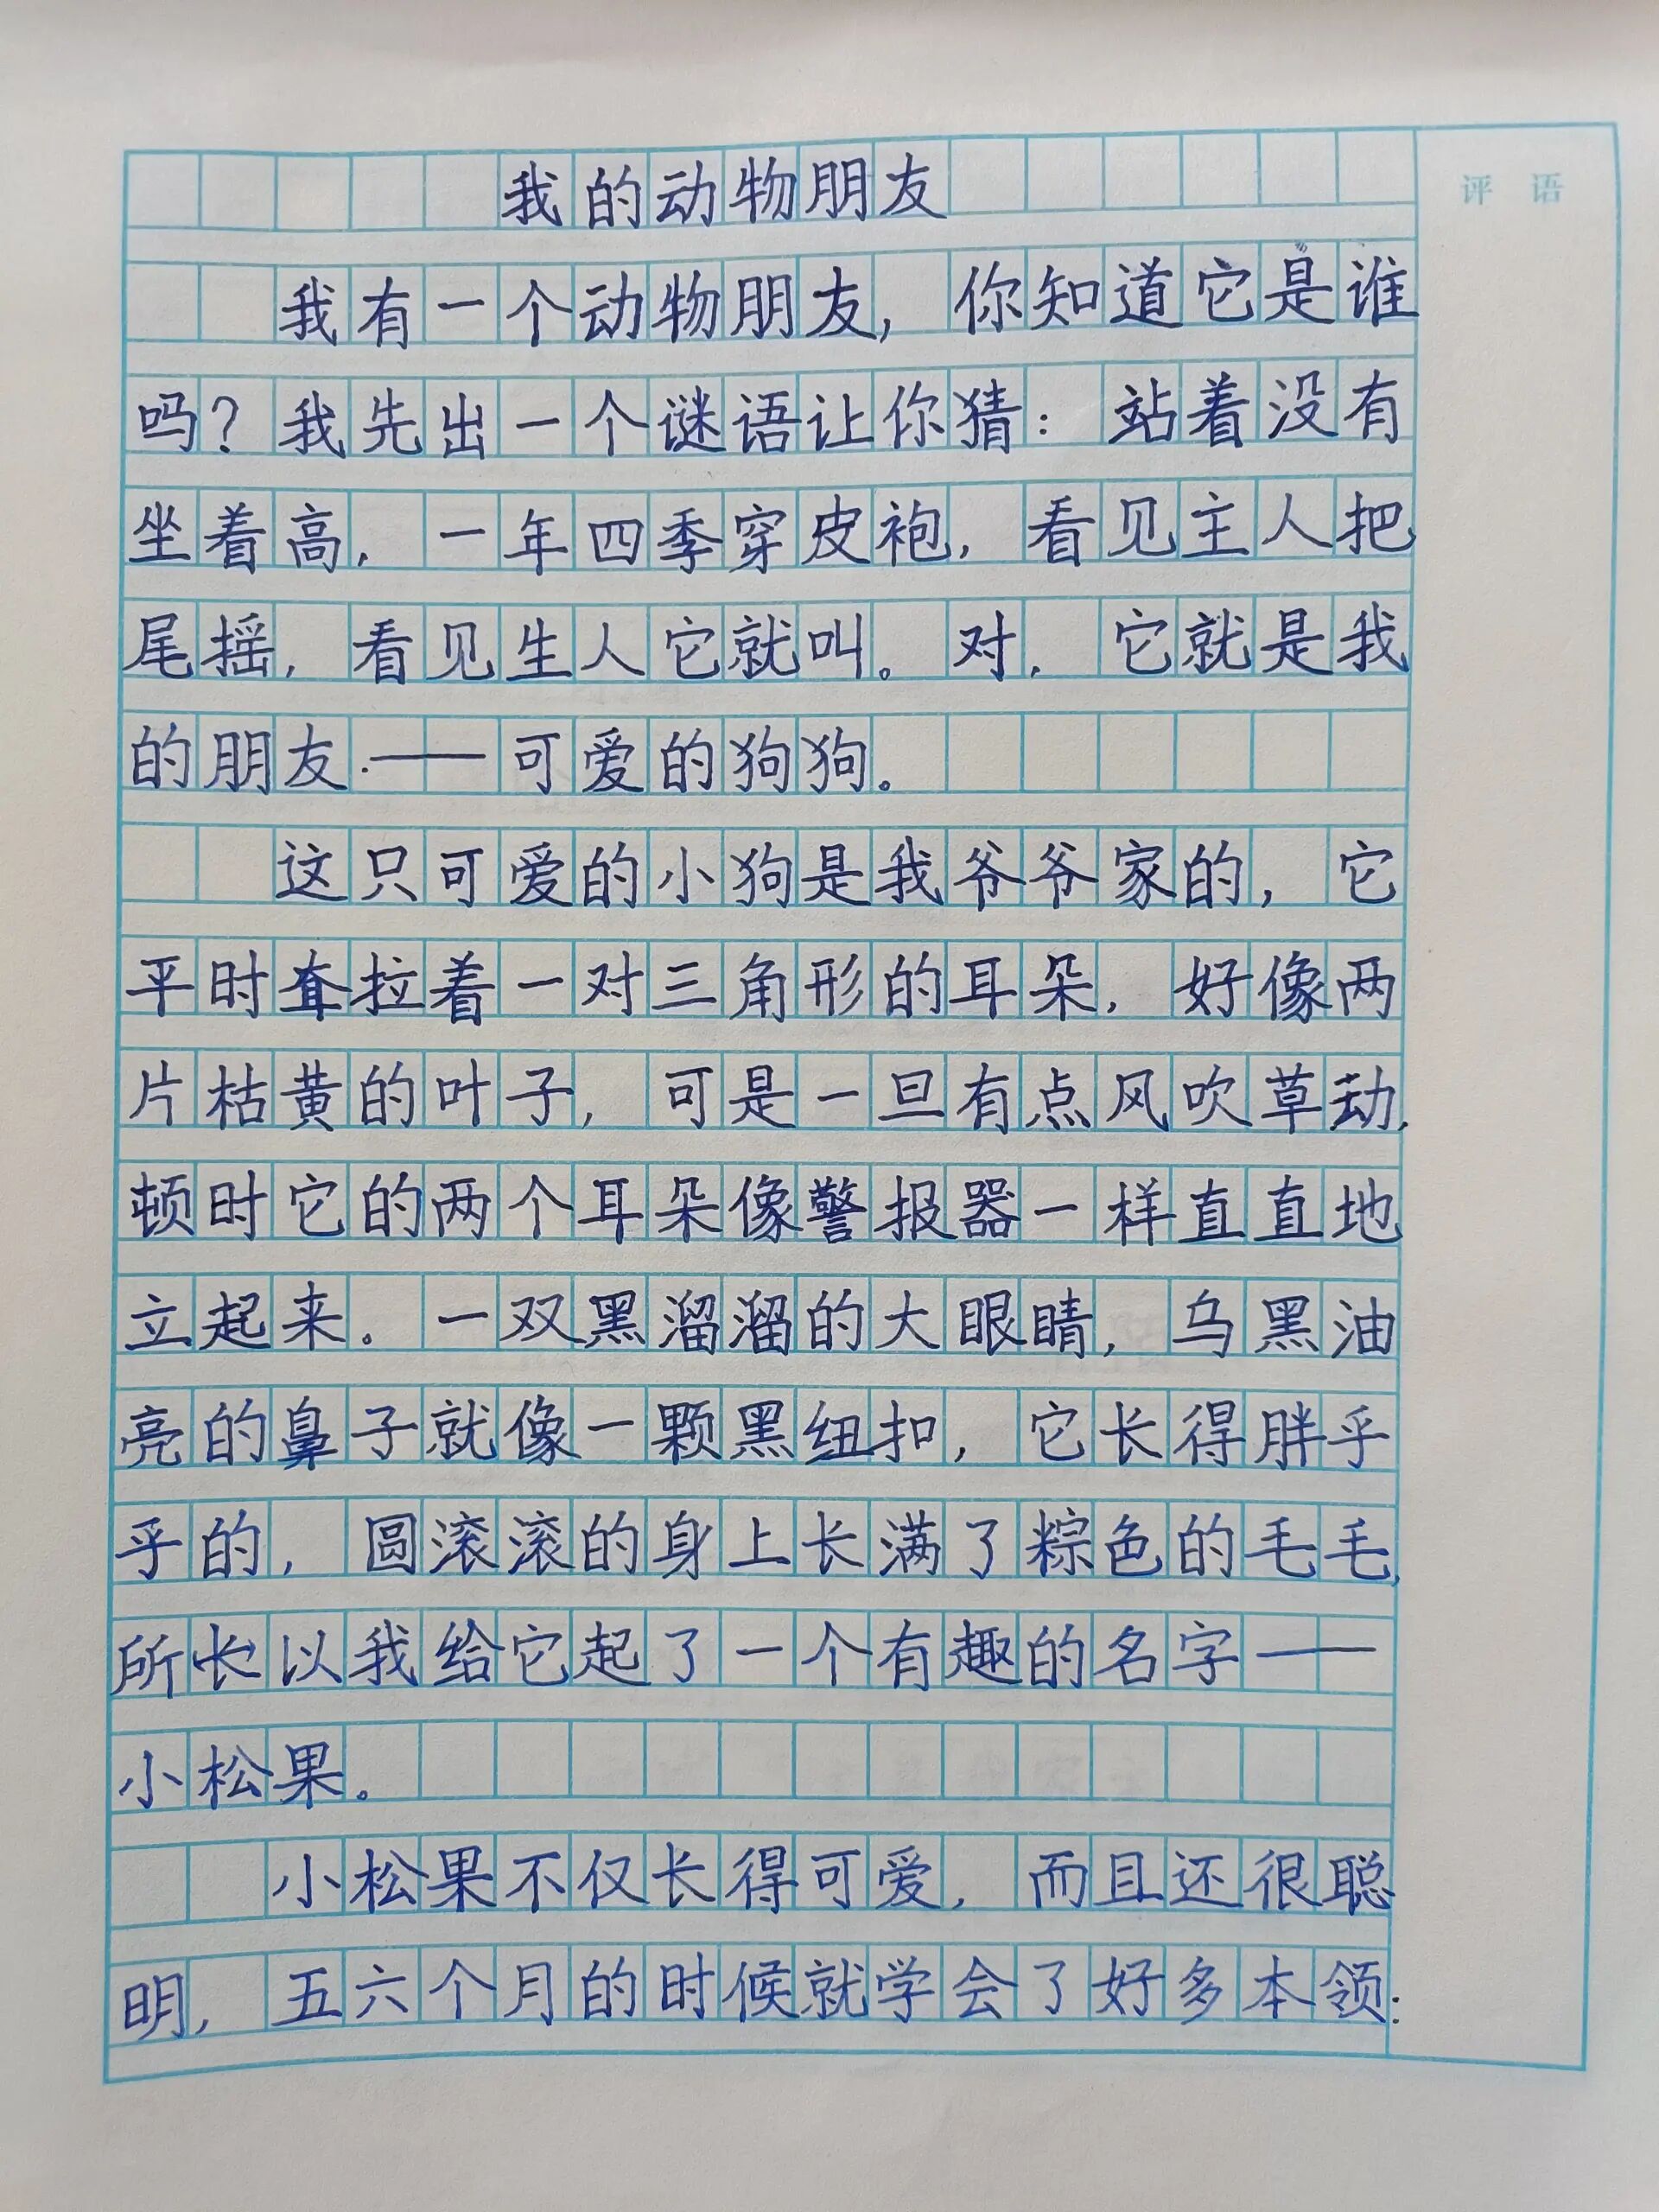 我的动物朋友
评语
我有一个动物朋友，你知道它是谁
吗？我先出一个谜语让你猜：站着没有
坐着高，一年四季穿皮袍，看见主人把
尾摇，看见生人它就叫。对，它就是我
的朋友——可爱的狗狗。
这只可爱的小狗是我爷爷家的，它
平时耷拉着一对三角形的耳朵，好像两
片枯黄的叶子，可是一旦有点风吹草动，
顿时它的两个耳朵像警报器一样直直地
立起来。一双黑溜溜的大眼睛，乌黑油
亮的鼻子就像一颗黑纽扣，它长得胖乎
乎的，圆滚滚的身上长满了棕色的毛毛，
所长以我给它起了一个有趣的名字——
小松果。
小松果不仅长得可爱，而且还很聪
明，五六个月的时候就学会了好多本领：